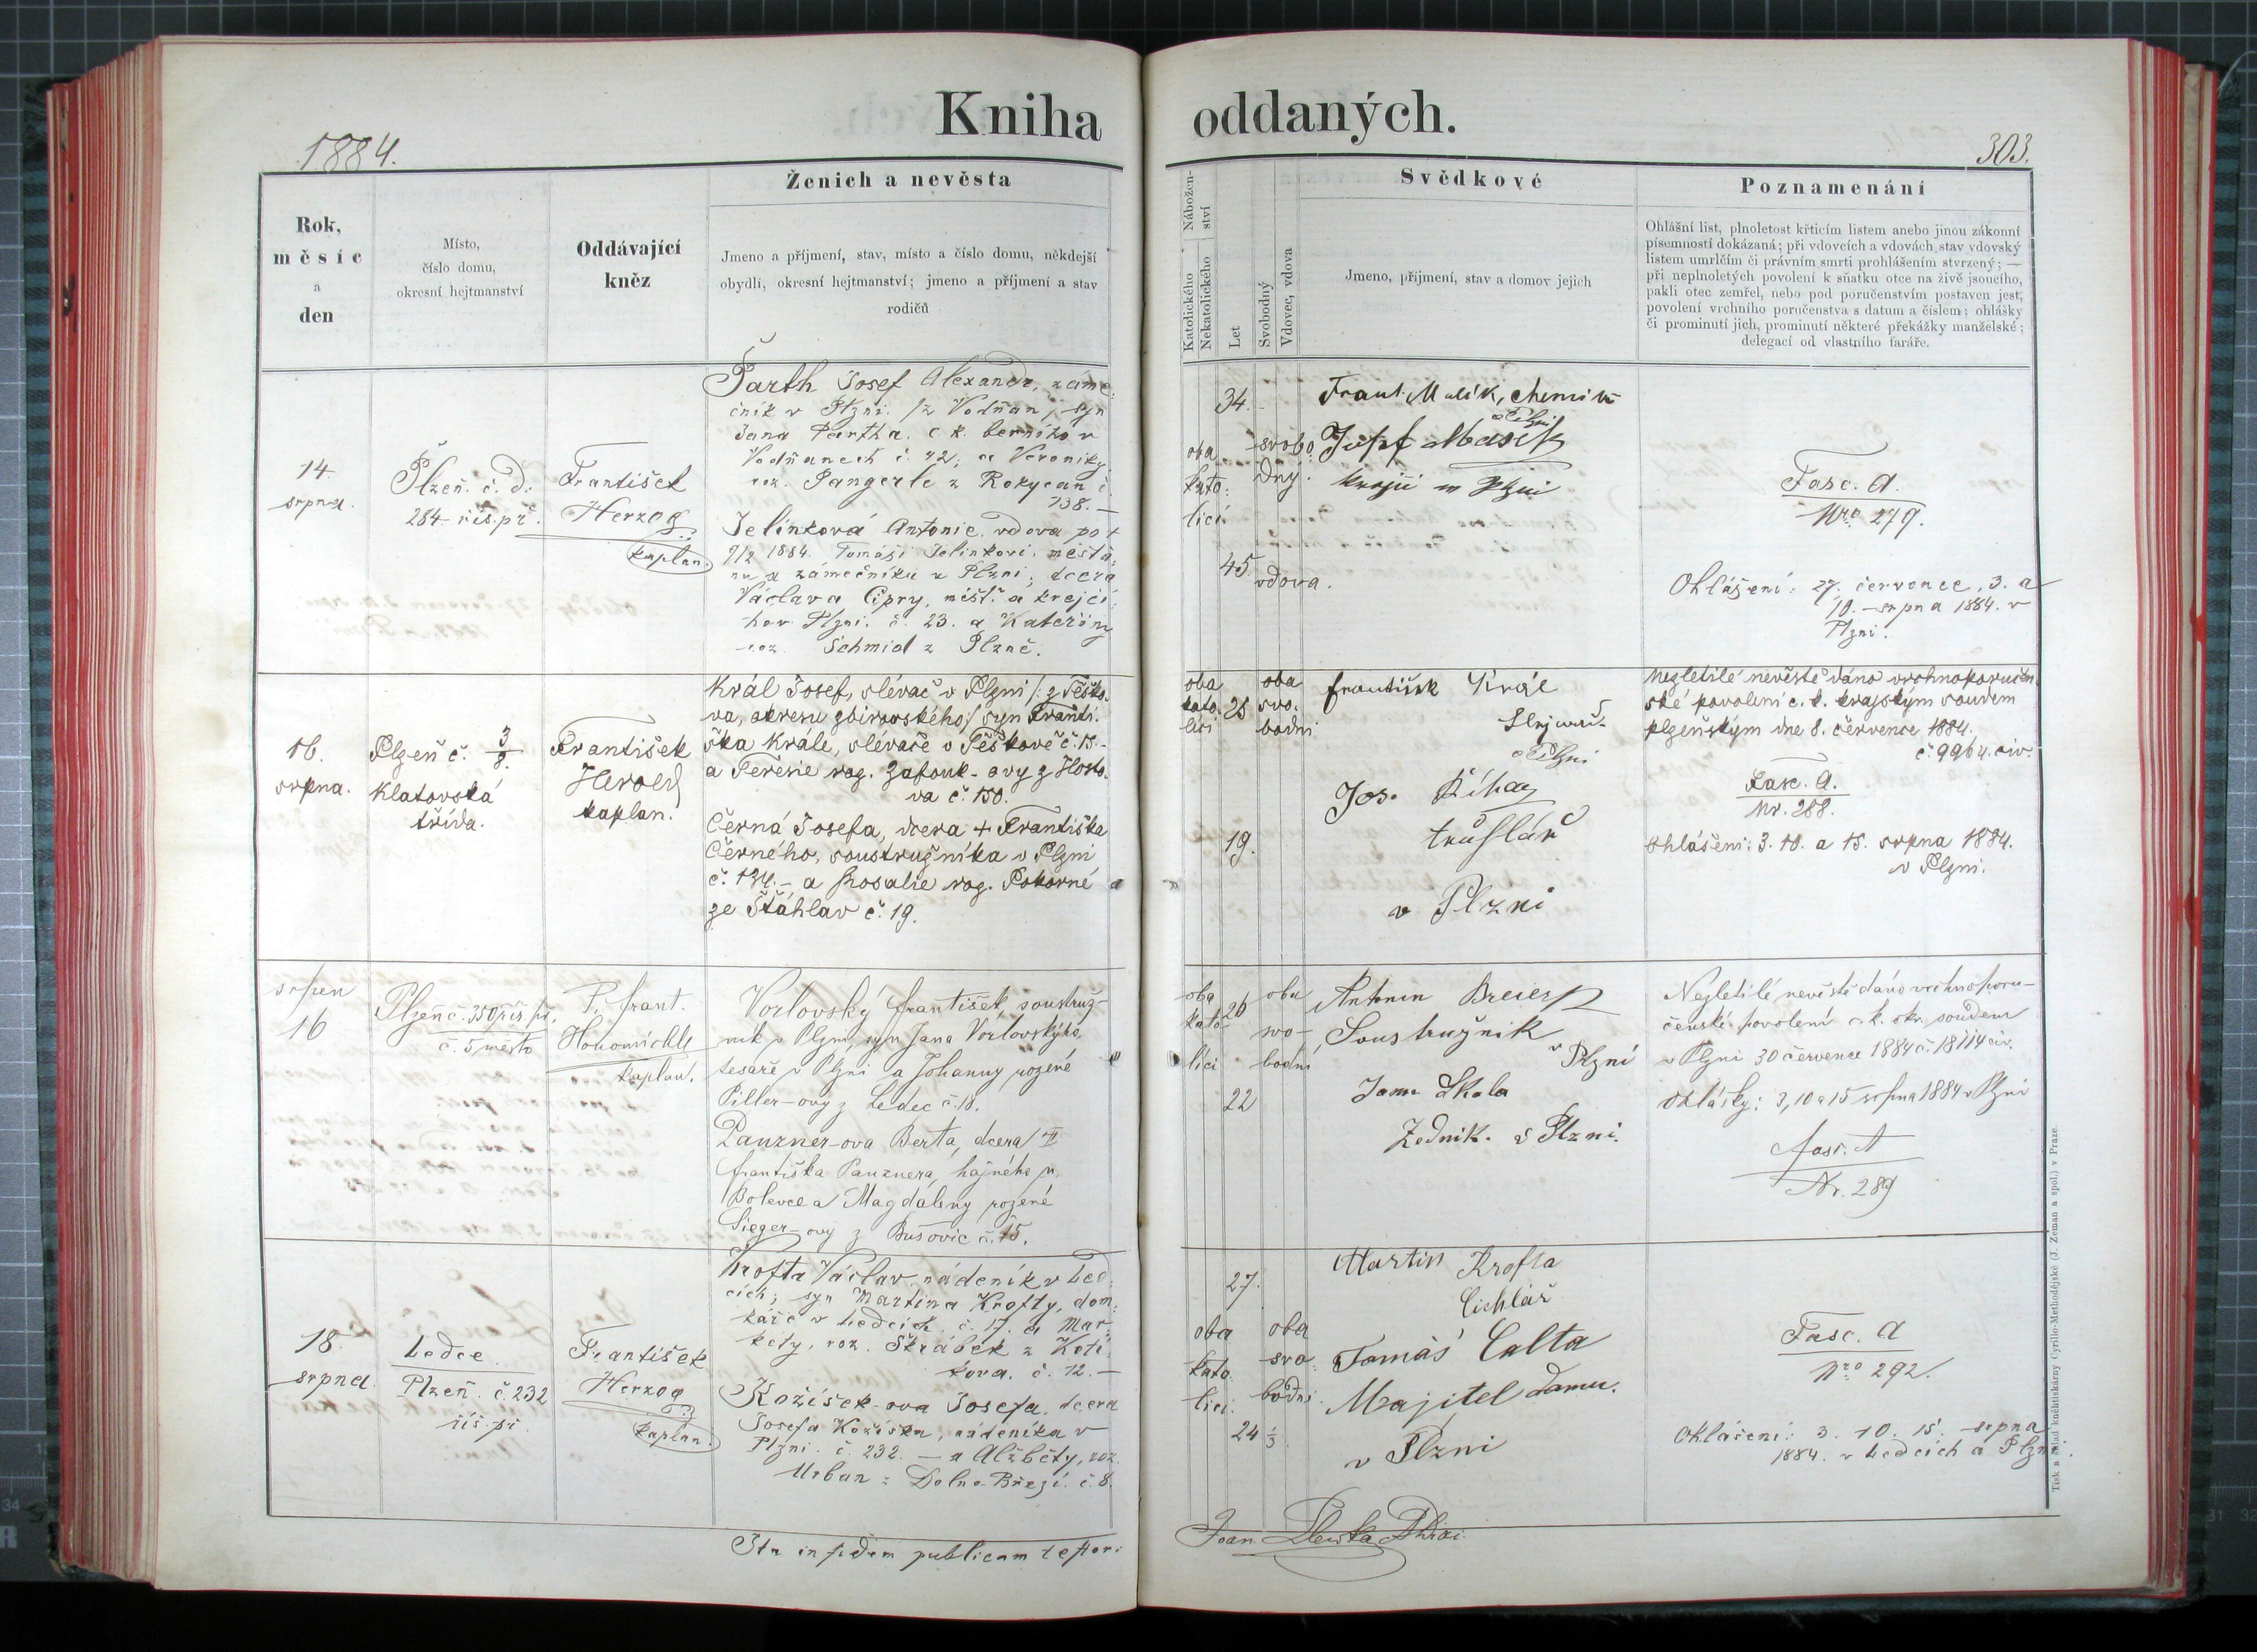 Kniha oddaných.
1884.
303.
Rok,
měsíc
a
den
Místo,
číslo domu,
okresní hejtmanství
Oddávající
kněz
Ženich a nevěsta
Jmeno a příjmení, stav, místo a číslo domu, někdejší
obydlí, okresní hejtmanství; jmeno a příjmení a stav
rodičů
Nábožen-
ství
Katolického
Nekatolického
Let
Svobodný
Vdovec, vdova
Svědkové
Jmeno, příjmení, stav a domov jejich
Poznamenání
Ohlášní list, plnoletost křticím listem anebo jinou zákonní
písemností dokázaná; při vdovcích a vdovách stav vdovský
listem umrlčím či právním smrti prohlášením stvrzený; —
při neplnoletých povolení k sňatku otce na živě jsoucího,
pakli otec zemřel, nebo pod poručenstvím postaven jest,
povolení vrchního poručenstva s datum a číslem; ohlášky
či prominutí jich, prominutí některé překážky manželské;
delegací od vlastního faráře.
14.
srpna.
Plzeň. č. d.
284 říš. př.
František
Herzog
kaplan.
Parth Josef Alexandr, záme-
čník v Plzni. /z Vodňan/, syn
Jana Partha. c. k. berního v
Vodňanech č. 42; a Veroniky
roz. Pangerle z Rokycan č.
138. —
Jelínková Antonie, vdova po †
7/2 1884. Tomáši Jelínkovi, měšťa-
nu a zámečníku v Plzni; dcera
Václava Cipry, měšť. a krejčí-
ho v Plzni. č. 23. a Kateřiny
roz. Schmid z Plzně.
oba
kato-
licí
34.
45.
svobo-
dný.
vdova.
Frant. Masík, chemik
v Plzni
Josef Masík
krejčí v Plzni
Fasc. A.
Nro 279.
Ohlášení: 27. července, 3. a
10. srpna 1884. v
Plzni.
16.
srpna.
Plzeň č. 3/8.
Klatovská
třída.
František
Herold
kaplan.
Král Josef, slévač v Plzni /: z Těško-
va, okresu zbirovského:/ syn Franti-
ška Krále, slévače v Těškově č. 15.-
a Terezie roz. Zafouk-ovy z Hosto-
va č. 150.
Černá Josefa, dcera + Františka
Černého, soustružníka v Plzni
č. 134. - a Rosalie roz. Pokorné
ze Šťáhlav č. 19.
oba
kato-
líci
25
19.
oba
svo-
bodni
František Král
v Plzni
Jos. Říha
truhlář
v Plzni
Nezletilé nevěstě dáno vrchnoporučen-
ské povolení c. k. krajským soudem
plzeňským dne 8. července 1884.
č. 9964. civ.
Fasc. A.
Nr. 288.
Ohlášeni: 3. 10. a 15. srpna 1884.
v Plzni.
srpen
16
Plzeň č. 350 říš. př.
č. 5 město
P. Frant.
Honomichl
kaplan.
Vorlovský František, soustruž-
ník v Plzni, syn Jana Vorlovského,
tesaře v Plzni a Johanny rozené
Piller-ovy z Ledec č. 18.
Panzner-ova Berta, dcera †
Františka Panznera, hajného v
Bolevce a Magdaleny rozené
Sieger-ovy z Bušovic č. 15.
oba
kato-
lici
26
22
oba
svo-
bodni
Antonin Breier
Soustružnik
v Plzni
Jan Skala
Zednik. v Plzni.
Nezletilé nevěstě dáno vrchnoporu-
čenské povolení c. k. okr. soudem
v Plzni 30 července 1884 č. 18114 civ.
Ohlášky: 3, 10 a 15 srpna 1884 v Plzni
Fasc. A
Nr. 289
18.
srpna.
Ledce
Plzeň. č. 232
říš. př.
František
Herzog
kaplan.
Krofta Václav, nádeník v Led-
cích; syn Martina Krofty, dom-
káře v Ledcích. č. 17. a Mar-
kety, roz. Škrábek z Koti-
kova. č. 12. —
Kožíšek-ova Josefa, dcera
Josefa Kožíška, nádeníka v
Plzni. č. 232. — a Alžběty, roz.
Urban z Dolno-Březí. č. 8.
oba
kato-
lící.
27.
24 1/3
oba
svo-
bodni.
Martin Krofta
Cichlář
Tomáš Calta
Majitel domu.
v Plzni
Fasc. A
Nro 292.
Ohlášeni: 3. 10. 15. srpna
1884. v Ledcích a Plzni.
Ita in fidem publicam testor:
Joan
Tisk a sklad kněhtiskárny Cyrillo-Methodějské (J. Zeman a spol.) v Praze.